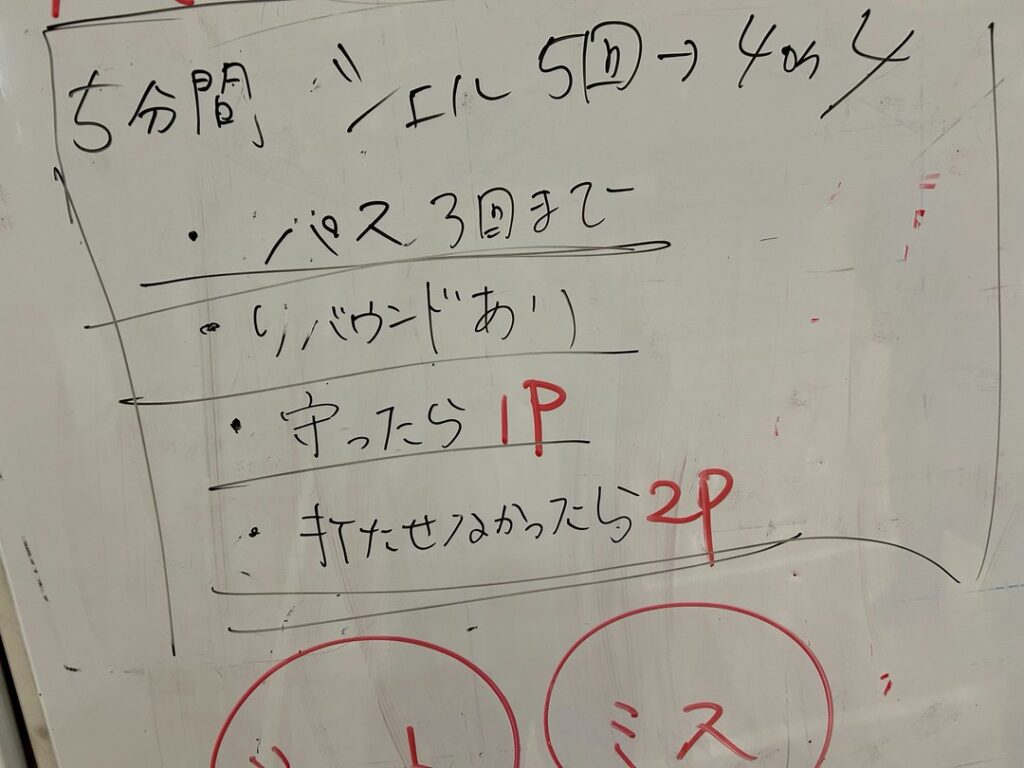 5分間 シェル 5回→4on4
・パス3回まで
・リバウンドあり
・守ったら1P
・打たせなかったら2P
ミス